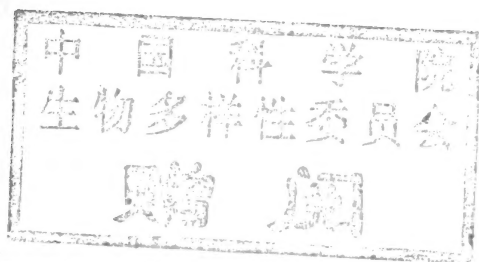 中国科学院
生物多样性委员会